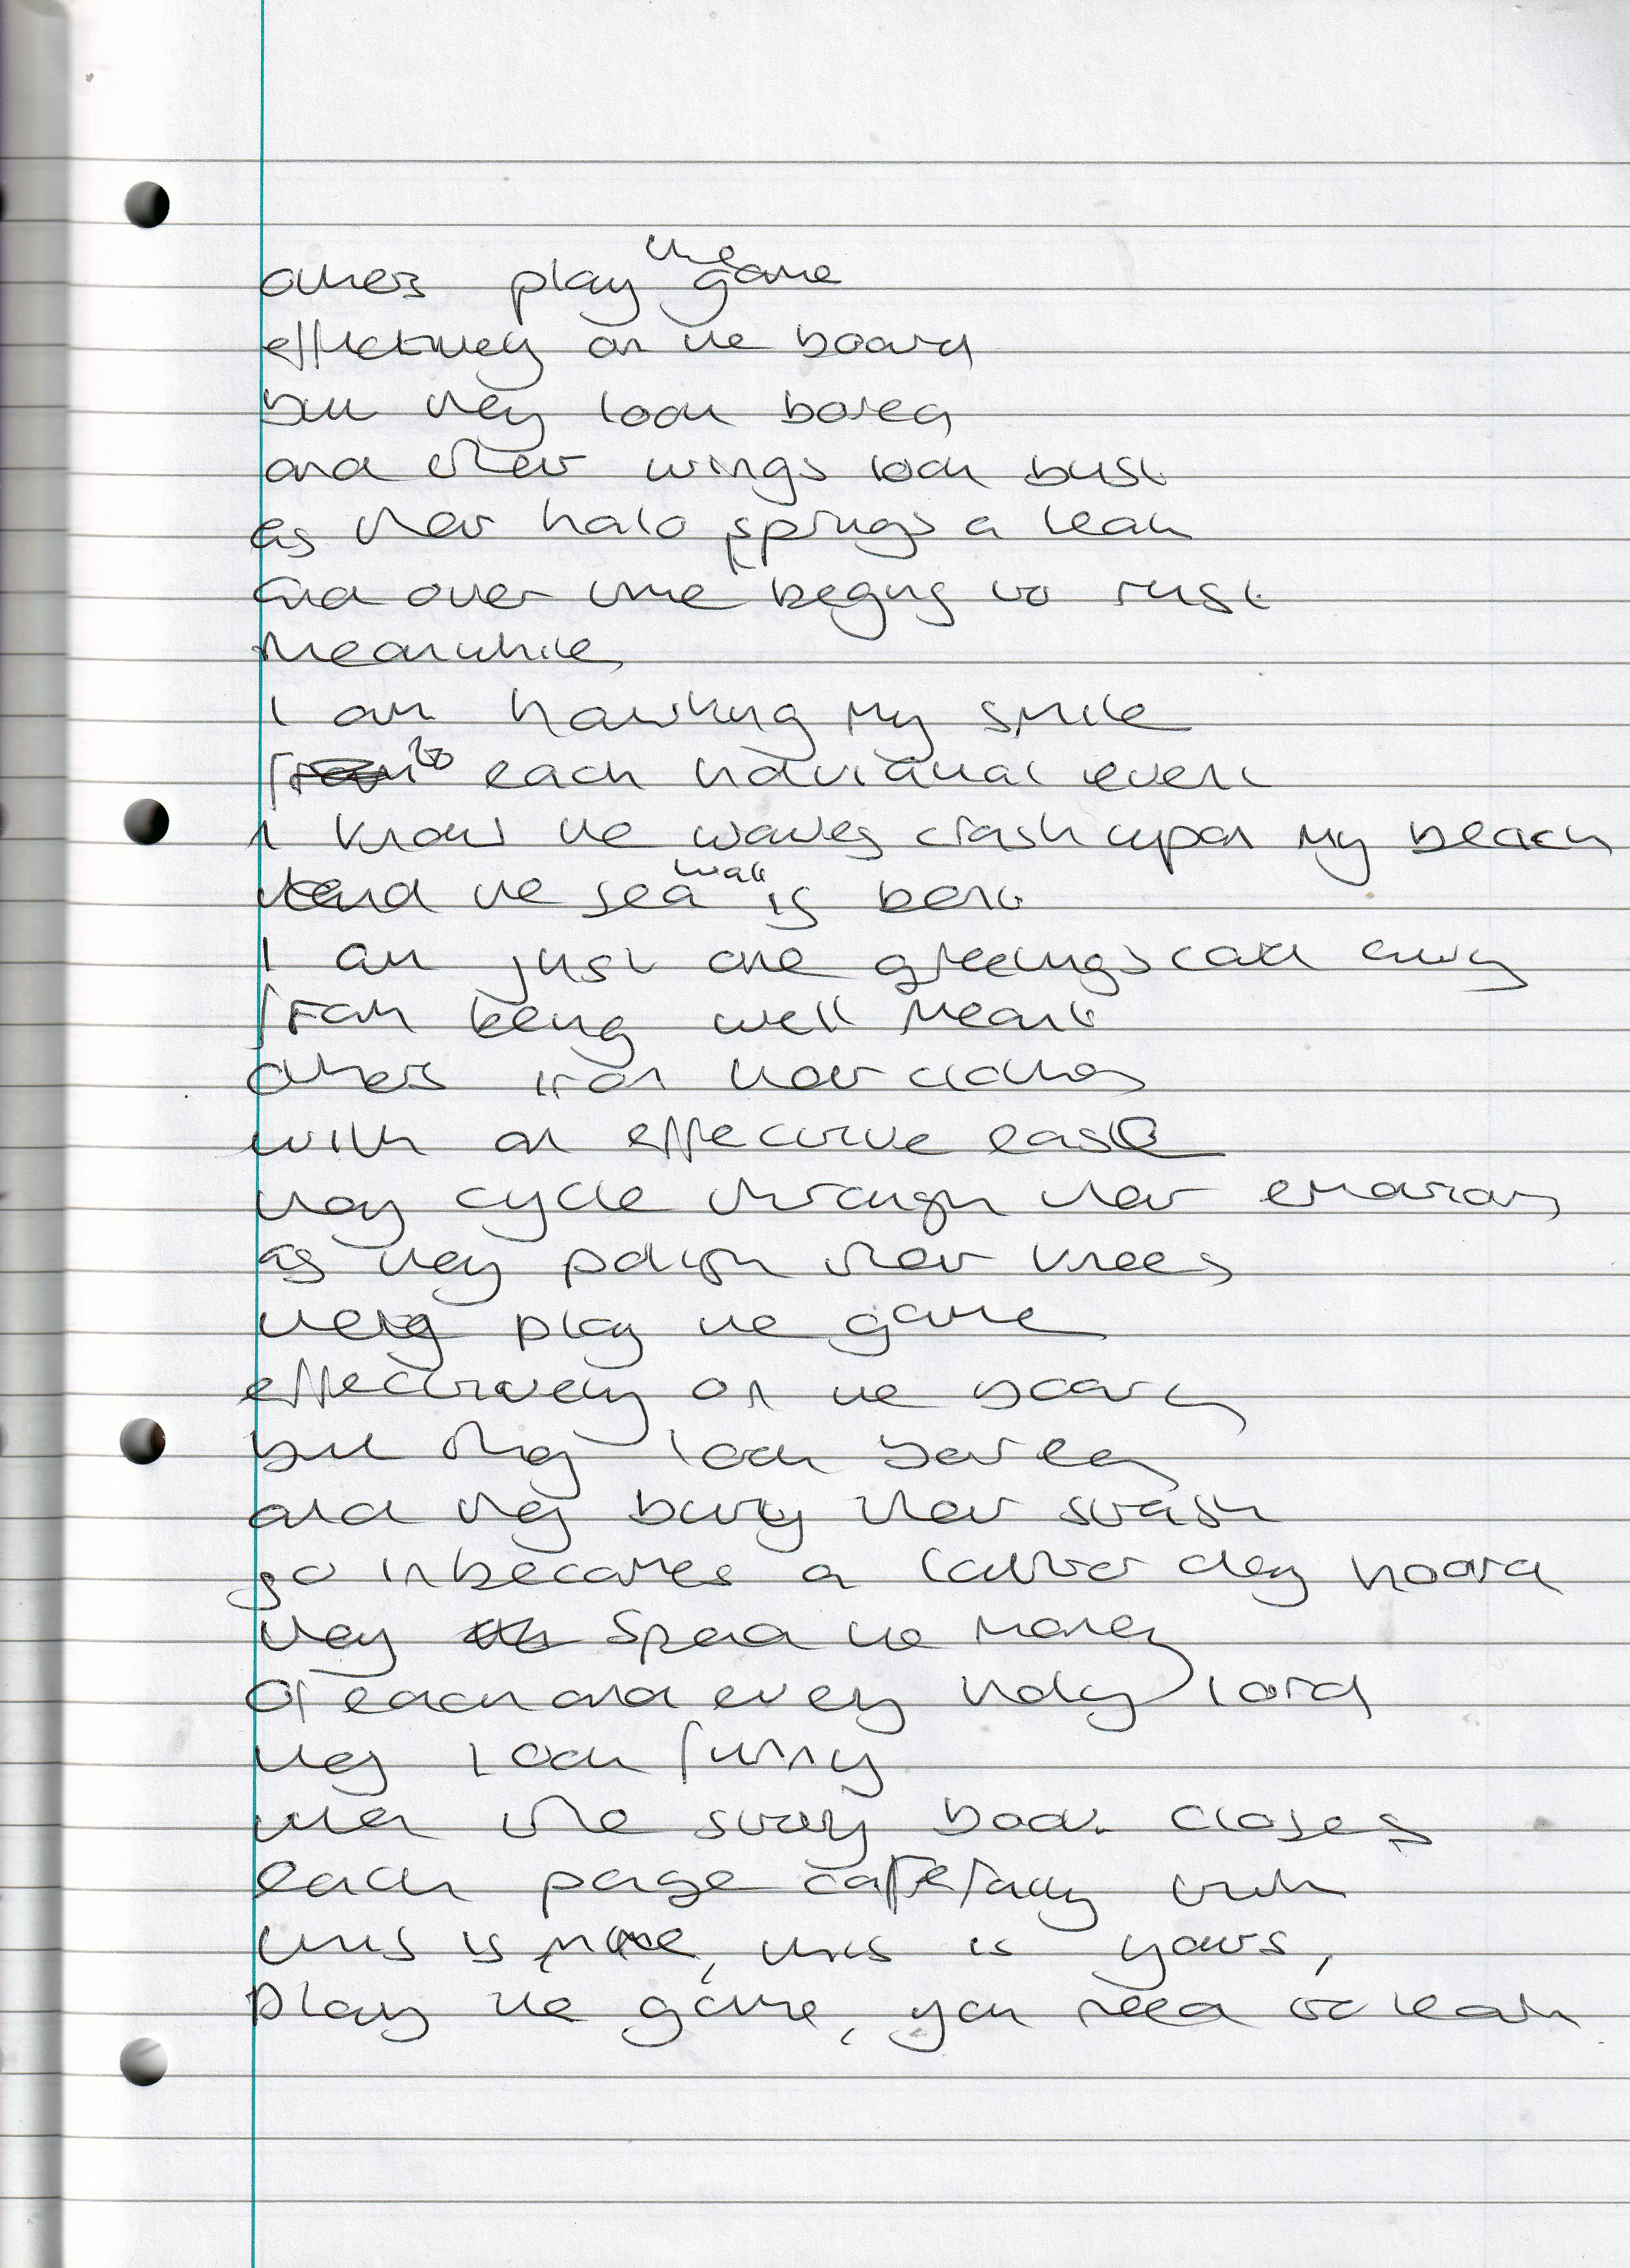 others play the game
effectively on the board
but they look bored
and their wings look bust
as their halo springs a leak
and over time begins to rust
meanwhile
I am hawking my smile
to each individual event
I know the waves crash upon my beach
and the sea wall is bent
I am just one greetings card away
from being well meant
others iron their clothes
with an effective ease
they cycle through their emotions
as they polish their knees
they play the game
effectively on the board
but they look bored
and they bury their stash
so it becomes a latter day hoard
they spend the money
of each and every holy lord
they look funny
when the story book closes
each page carefully
this is mine, this is yours,
play the game, you need to lean